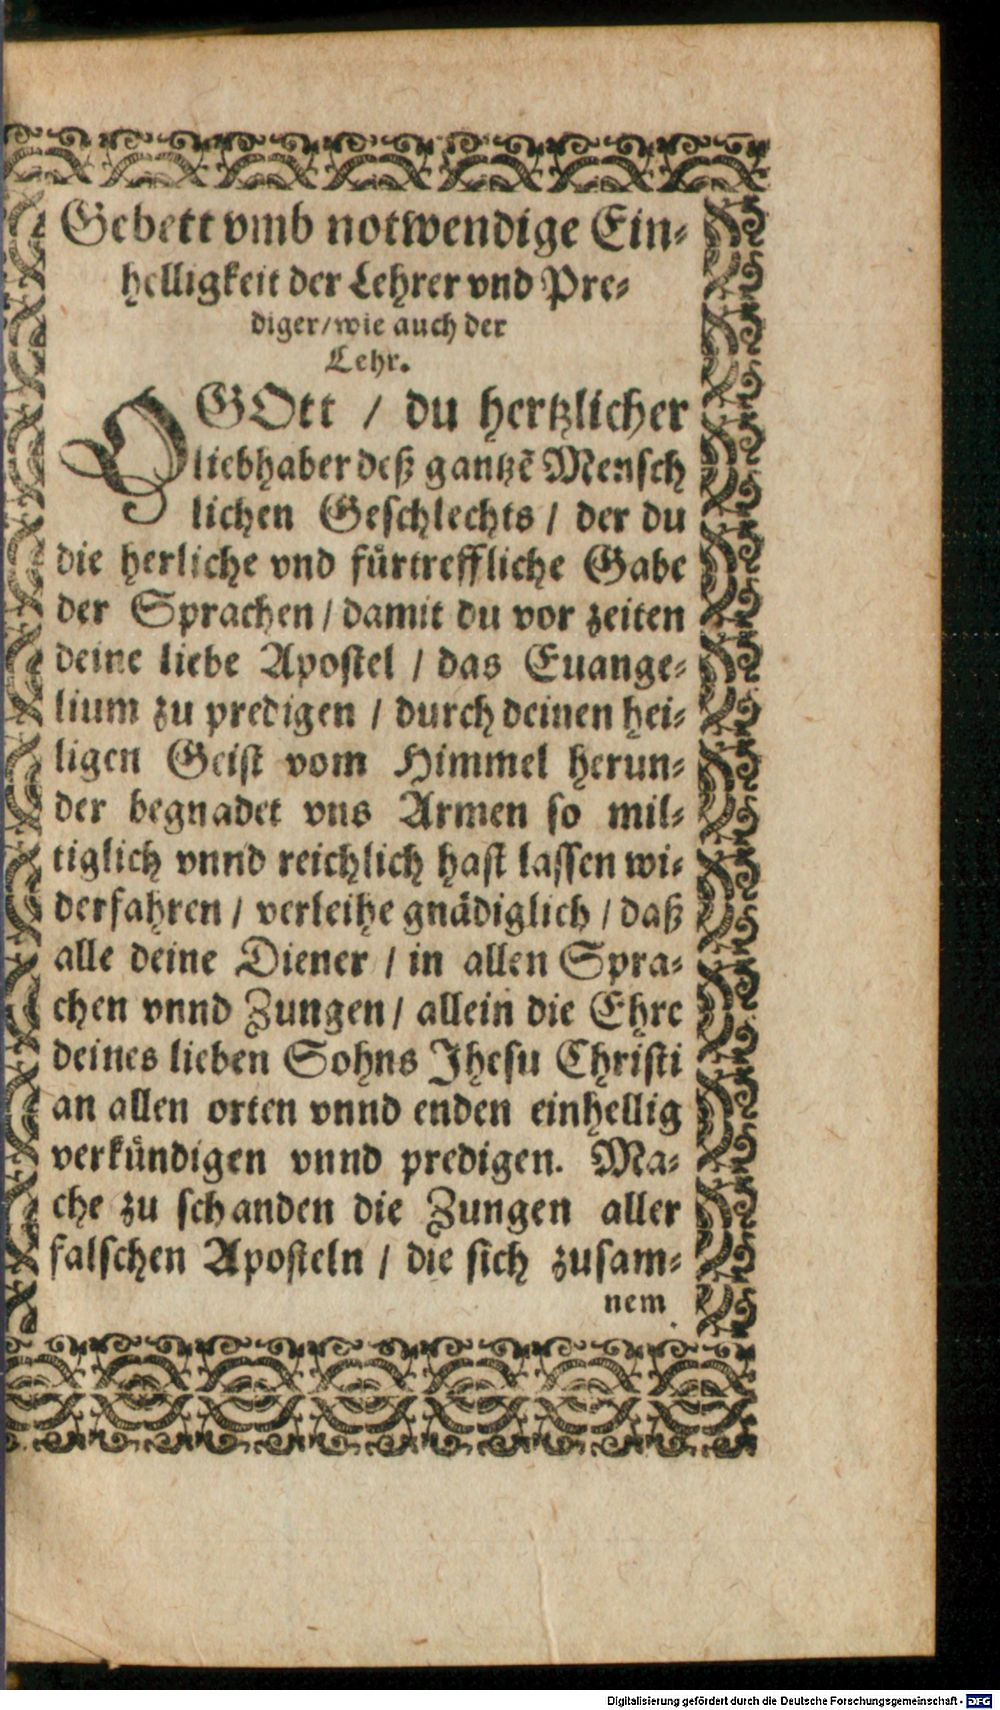 Gebett vmb notwendige Ein-
helligkeit der Lehrer vnd Pre-
diger/wie auch der
Lehr.
O GOtt / du hertzlicher
liebhaber deß gantzẽ Mensch
lichen Geschlechts / der du
die herliche vnd fürtreffliche Gabe
der Sprachen / damit du vor zeiten
deine liebe Apostel / das Euange-
lium zu predigen / durch deinen hei-
ligen Geist vom Himmel herun-
der begnadet vns Armen so mil-
tiglich vnnd reichlich hast lassen wi-
derfahren / verleihe gnädiglich / daß
alle deine Diener / in allen Spra-
chen vnnd Zungen / allein die Ehre
deines lieben Sohns Jhesu Christi
an allen orten vnnd enden einhellig
verkündigen vnnd predigen. Ma-
che zu schanden die Zungen aller
falschen Aposteln / die sich zusam-
nem
Digitalisierung gefördert durch die Deutsche Forschungsgemeinschaft - DFG